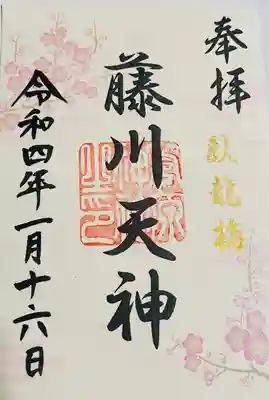 奉拝
臥龍梅
藤川天神
令和四年一月十六日